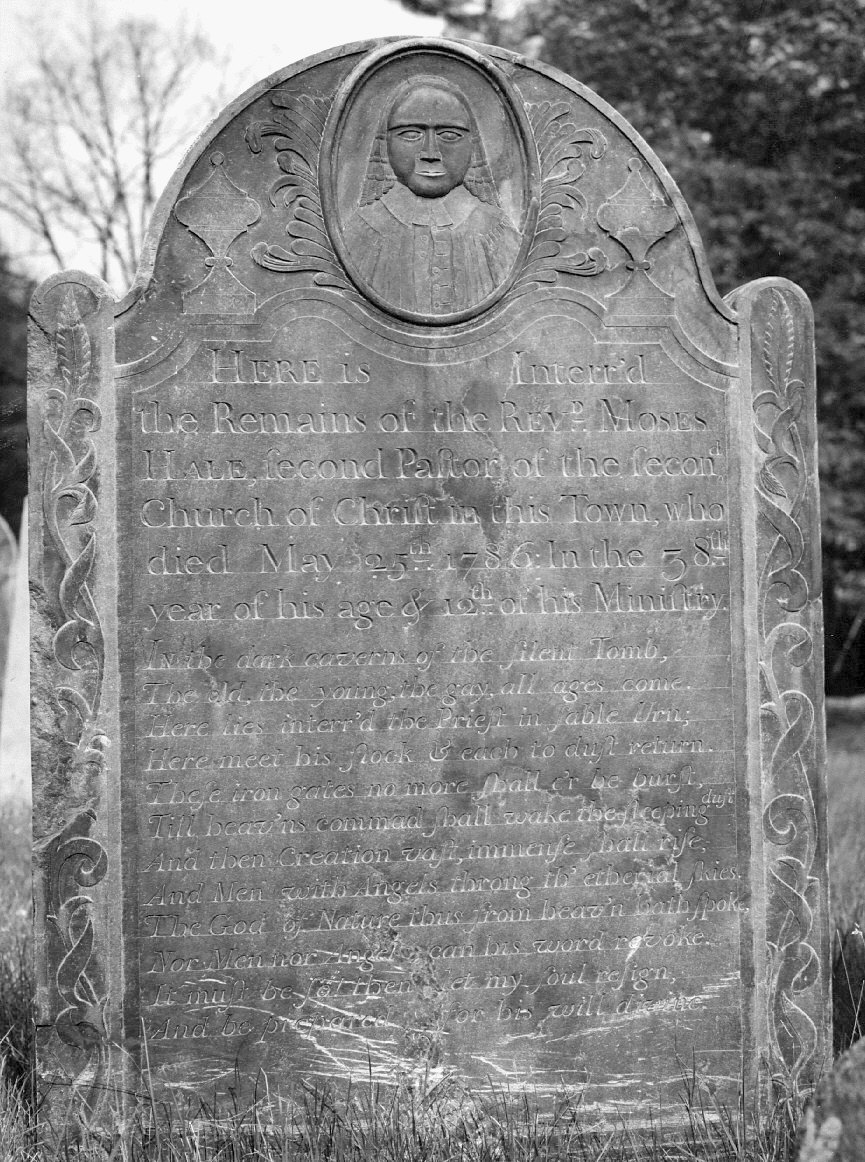 HERE is Interr'd
the Remains of the REVD. MOSES
HALE, ſecond Paſtor of the ſecond
Church of Chriſt in this Town, who
died May 25th. 1786: In the 38th.
year of his age & 12th. of his Miniſtry.
In the dark caverns of the ſilent Tomb,
The old, the young, the gay, all ages come.
Here lies interr'd the Prieſt in ſable Urn;
Here meet his flock & each to duſt return.
Theſe iron gates no more ſhall e'r be burſt,
Till heav'ns commad ſhall wake the ſleeping duſt
And then Creation vaſt, immenſe ſhall riſe,
And Men with Angels throng th' etherial ſkies.
The God of Nature thus from heav'n hath ſpoke,
Nor Men nor Angels can his word revoke.
It muſt be ſo: then let my ſoul reſign,
And be prepared for his will divine.